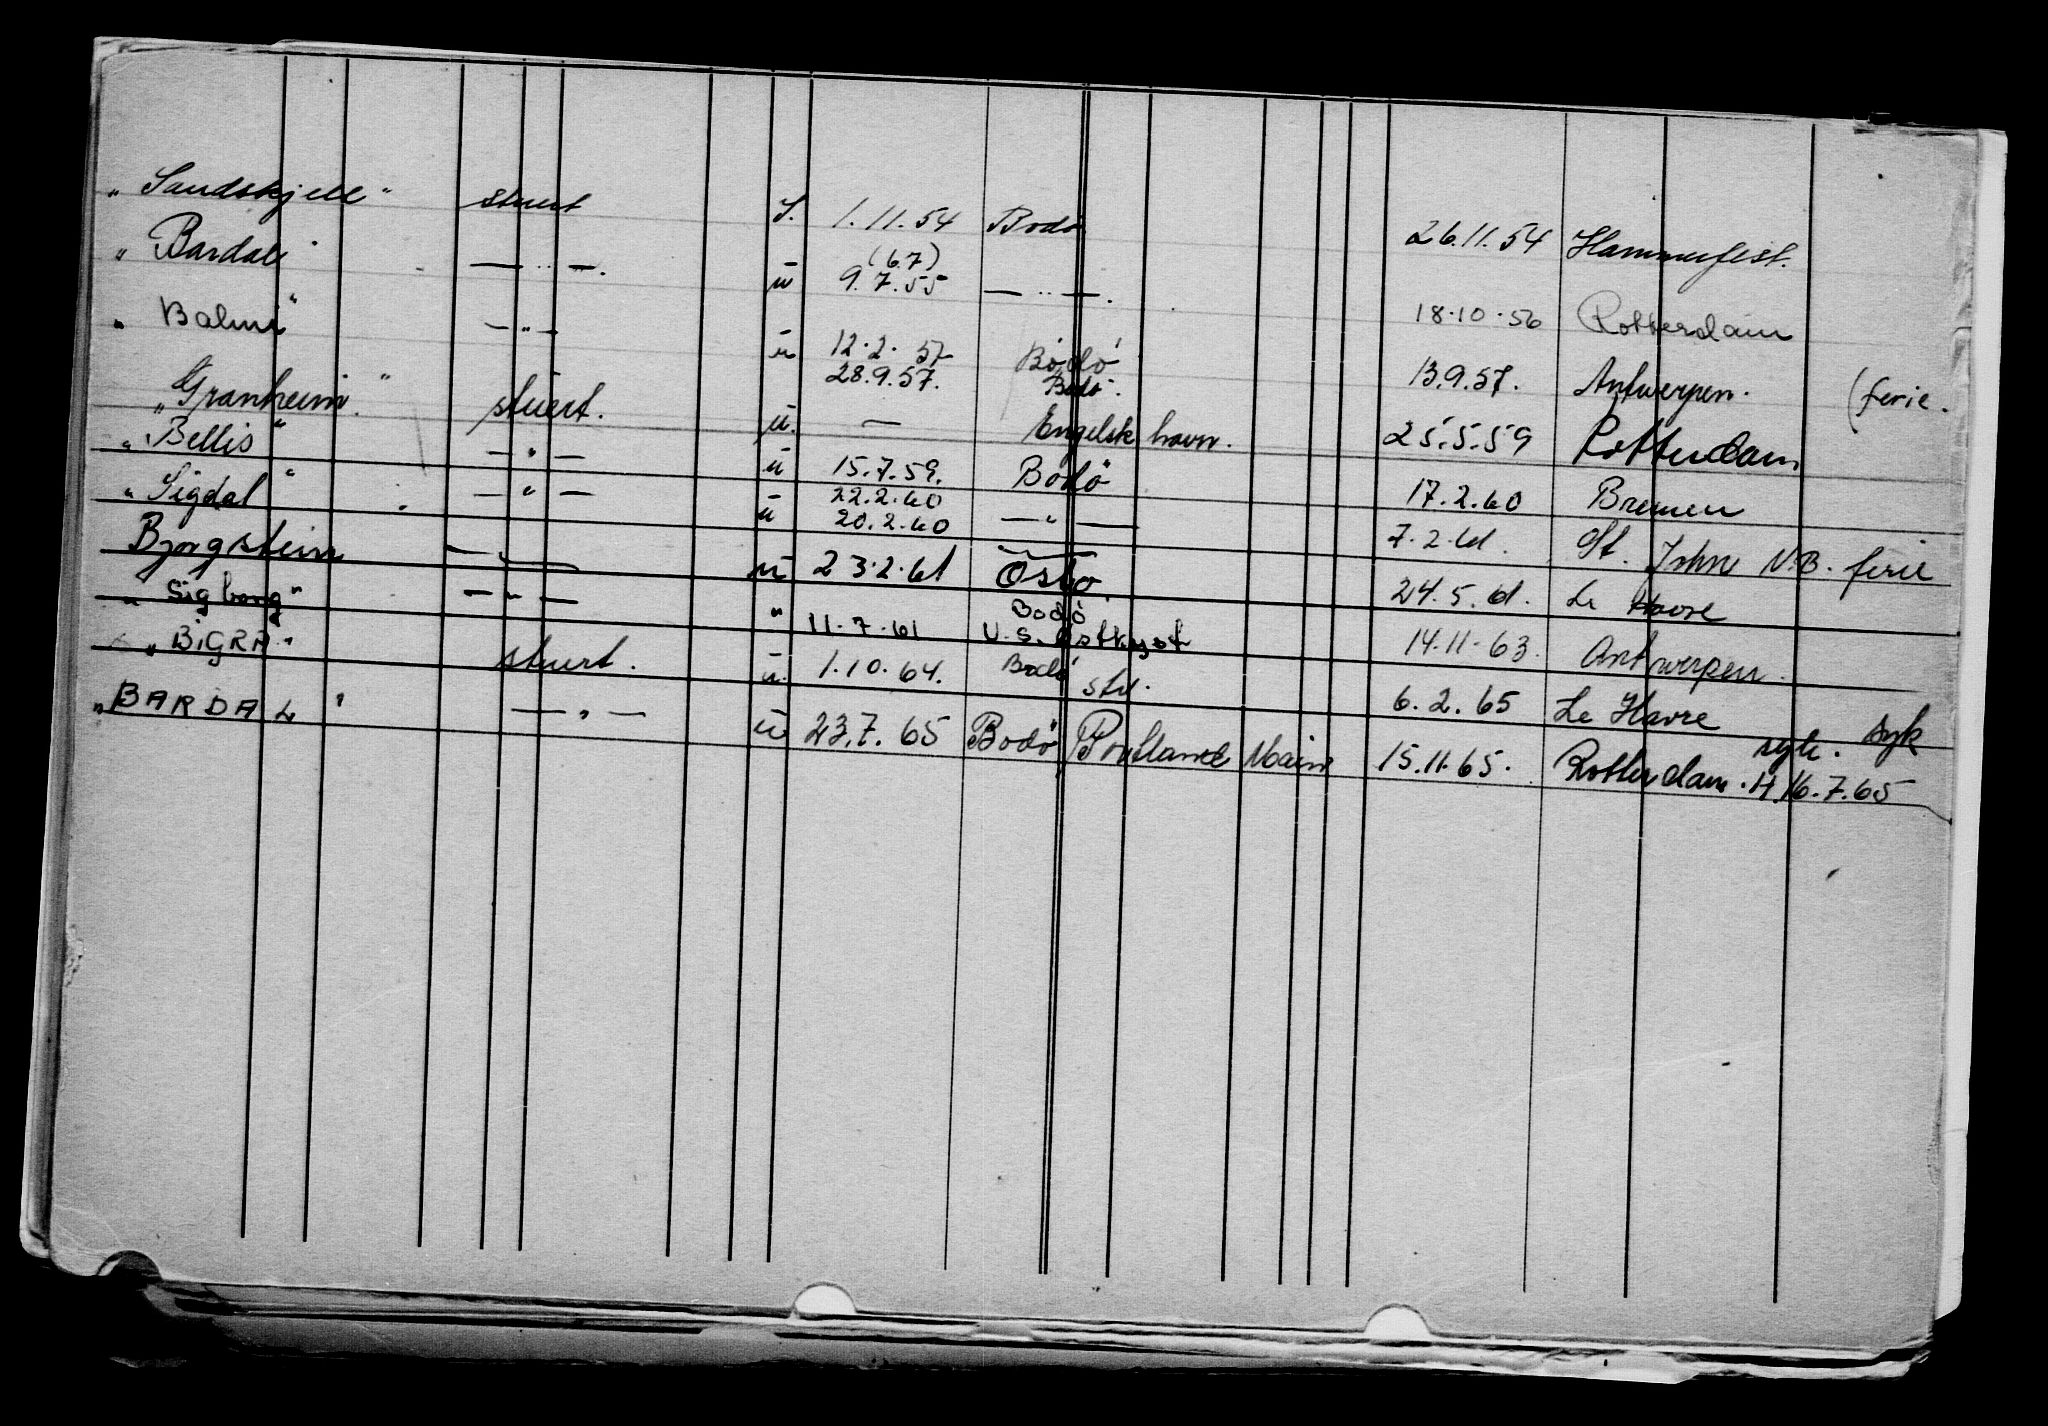 " Sandskjell " stuert S. 1.11.54 Bodö 26.11.54 Hammerfest.
" Bardal " — " —. u (6.7) 9.7.55 — " —. 18.10.56 Rotterdam
" Balmi " — " — u 12.2.57 Bodö 13.9.57. Antwerpen. (ferie.
28.9.57. Bodö.
" Granheim ". stuert. u. — Engelsk havn. 25.5.59 Rotterdam
" Bellis " — " — u 15.7.59. Bodö 17.2.60 Bremen
22.2.60
" Sigdal " — " — u 20.2.60 — " — 7.2.61. St. John N.B. ferie
Bjorgstein — " — u 23.2.61 Oslo. 24.5.61. Le Havre
Bodö
" Sigborg " — " — " 11.7.61 U.S. Östkyst 14.11.63. Antwerpen.
" BiGRA " stuert. u. 1.10.64. Bodö std. 6.2.65 Le Havre syk
syk.
" BARDAL " — " — u 23.7.65 Bodö, Portland Main 15.11.65. Rotterdam. H.16.7.65